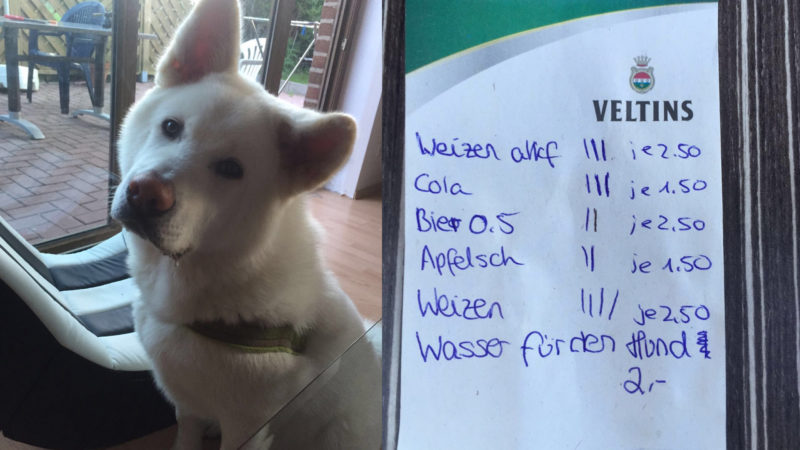 VELTINS
Weizen alkf III je 2.50
Cola III je 1.50
Bier 0.5 II je 2.50
Apfelsch II je 1.50
Weizen IIII je 2,50
Wasser für den Hund
2,-